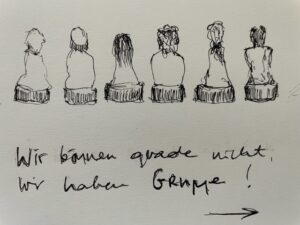 Wir können grade nicht,
wir haben GRUPPE!